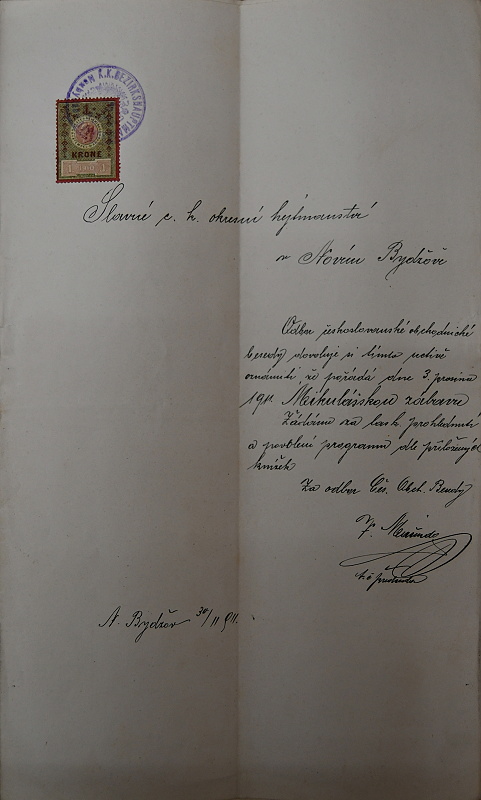 K.K. BEZIRKSHAUPTM
1
KRONE
1 1910 1
Slavné c. k. okresní hejtmanství
v Novém Bydžově
Odbor českoslovanské obchodnické
besedy dovoluje si tímto uctivě
oznámiti, že pořádá dne 3. prosince
1911 Mikulášskou zábavu
Žádáme za lask. prohlédnutí
a povolení programu dle přiložených
knížek
Za odbor Čes. Obch. Besedy
F.
t. č. předseda
N. Bydžov 30/11 911.